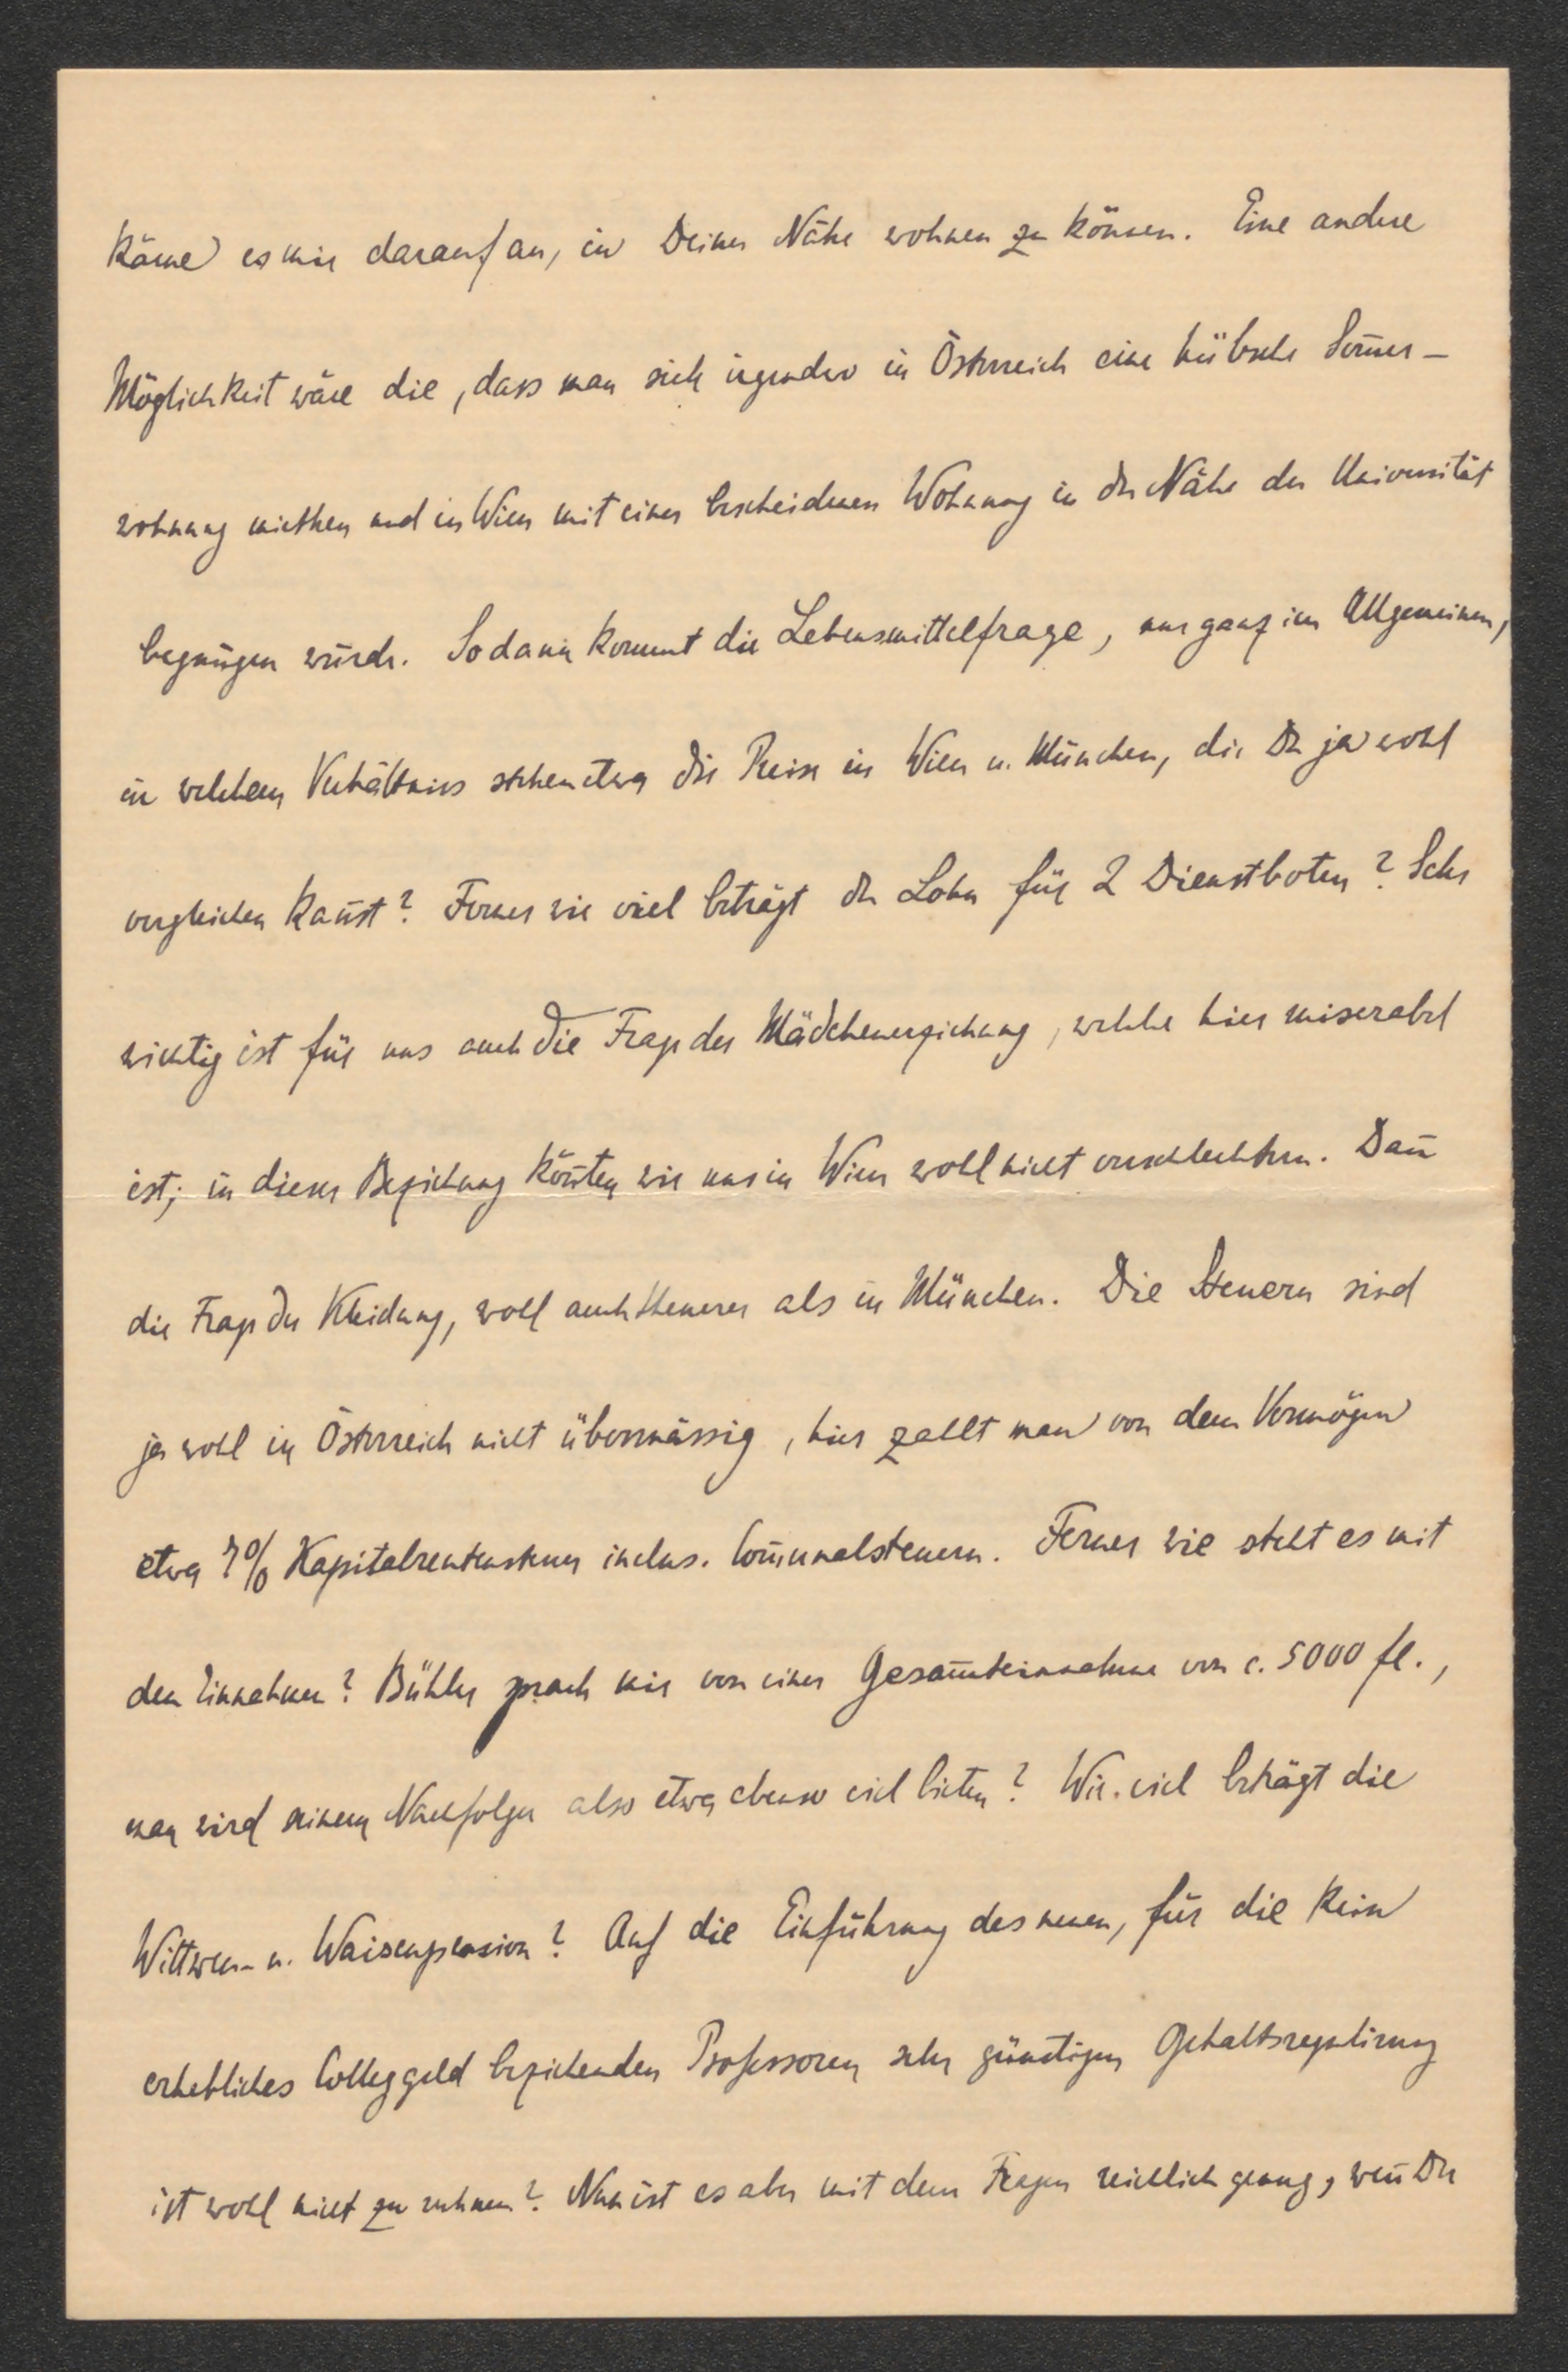 käme es mir darauf an, in Deiner Nähe wohnen zu können. Eine andere
Möglichkeit wäre die, dass man sich irgendwo in Österreich eine hübsche Som̅er-
wohnung miethen und in Wien mit einer bescheidenen Wohnung in der Nähe der Universität
begnügen würde. Sodann kommt die Lebensmittelfrage, nur ganz im Allgemeinen,
in welchem Verhältniss stehen etwa die Preise in Wien u. München, die Du ja wohl
vergleichen kan̅st? Ferner wie viel beträgt der Lohn für 2 Dienstboten? Sehr
wichtig ist für uns auch die Frage der Mädchenerziehung, welche hier miserabel
ist; in dieser Beziehung kön̅ten wir uns in Wien wohl nicht verschlechtern. Dan̅
die Frage der Kleidung, wohl auch theurer als in München. Die Steuern sind
ja wohl in Österreich nicht übermässig, hier zahlt man von dem Vermögen
etwa % Kapitalrentensteuer inclus. Com̅unalsteuern. Ferner wie steht es mit
den Einnahmen? Bühler sprach mir von einer Gesam̅teinnahme von c. 5000 fl.,
man wird seinem Nachfolger also etwa ebenso viel bieten? Wie viel beträgt die
Wittwen- u. Waisenpension? Auf die Einführung des neuen, für die kein
erhebliches Colleggeld beziehenden Professoren sehr günstigen Gehaltsregulirung
ist wohl nicht zu rechnen? Nun ist es aber mit dem Fragen reichlich genug, wen̅ Du